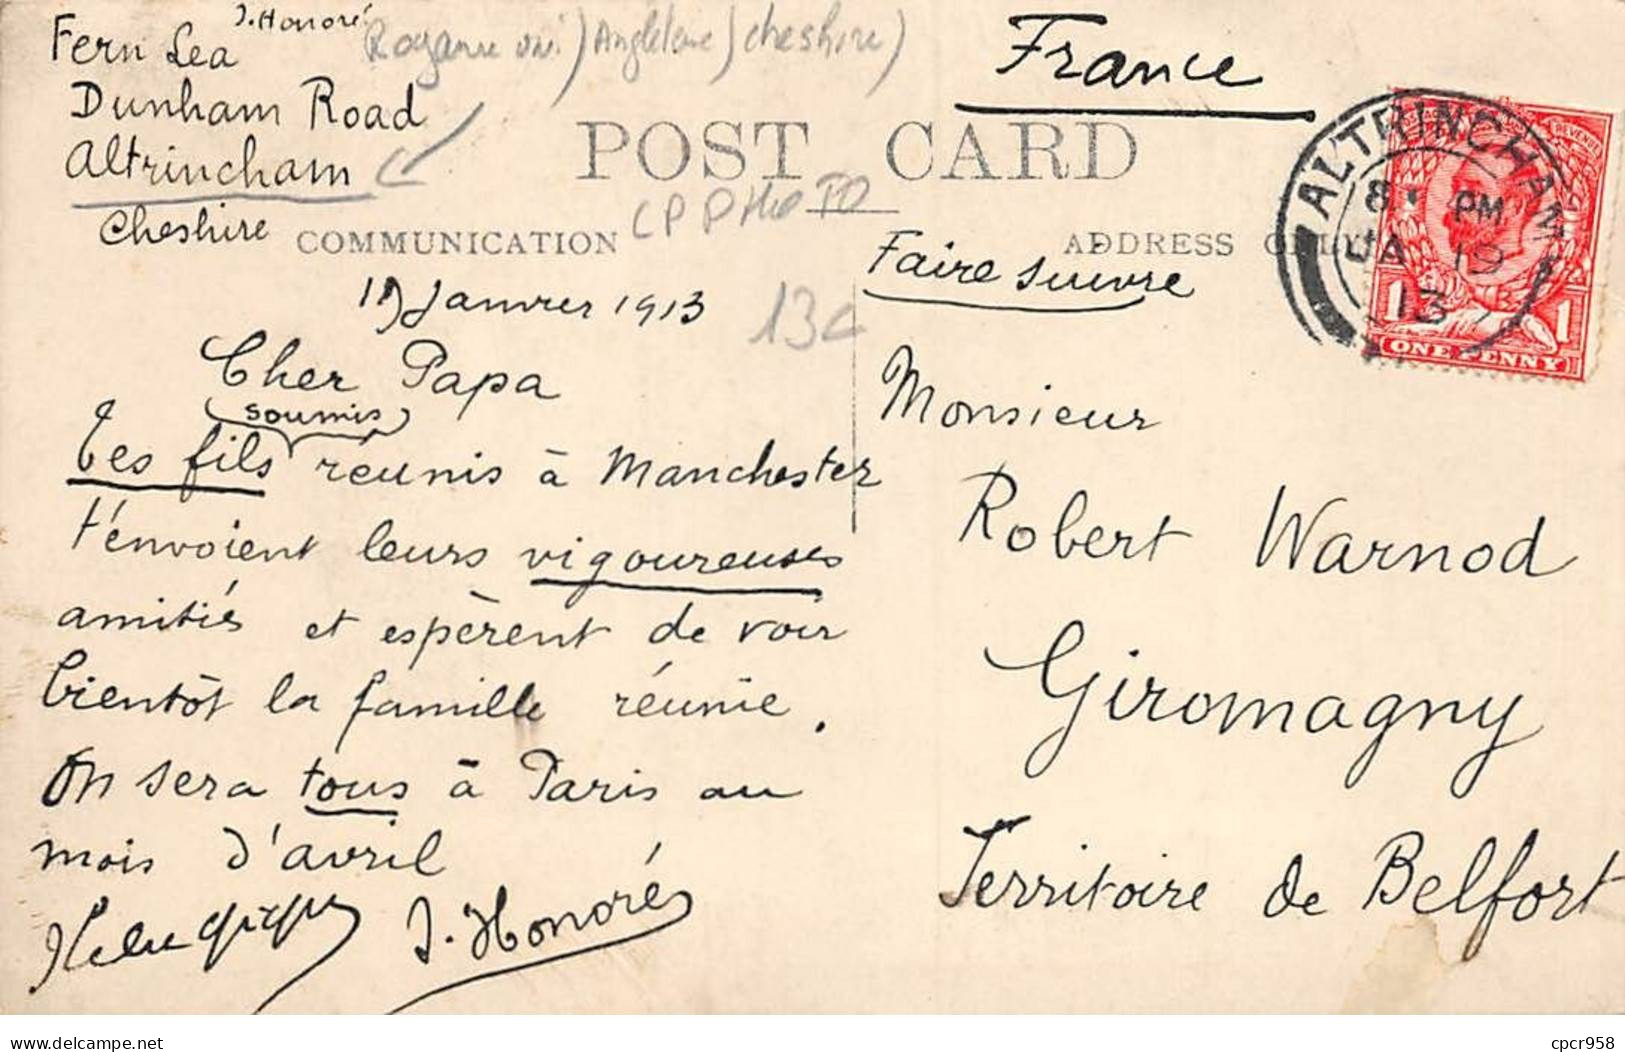 J. Honoré
Fern Lea
Dunham Road
Altrincham
Cheshire
Royaume uni) Angleterre) Cheshire)
France
POST CARD
CP PHOTO
COMMUNICATION
ADDRESS ONLY
ALTRINCHAM
8 PM
JA 19
13
REVENUE
1 1
ONE PENNY
Faire suivre
Janvier 1913
13c
Cher Papa
soumis
Tes fils réunis à Manchester
t'envoient leurs vigoureuses
amitiés et espèrent de voir
bientôt la famille réunie.
On sera tous à Paris au
mois d'avril
J. Honoré
Monsieur
Robert Warnod
Giromagny
Territoire de Belfort
cpcr958